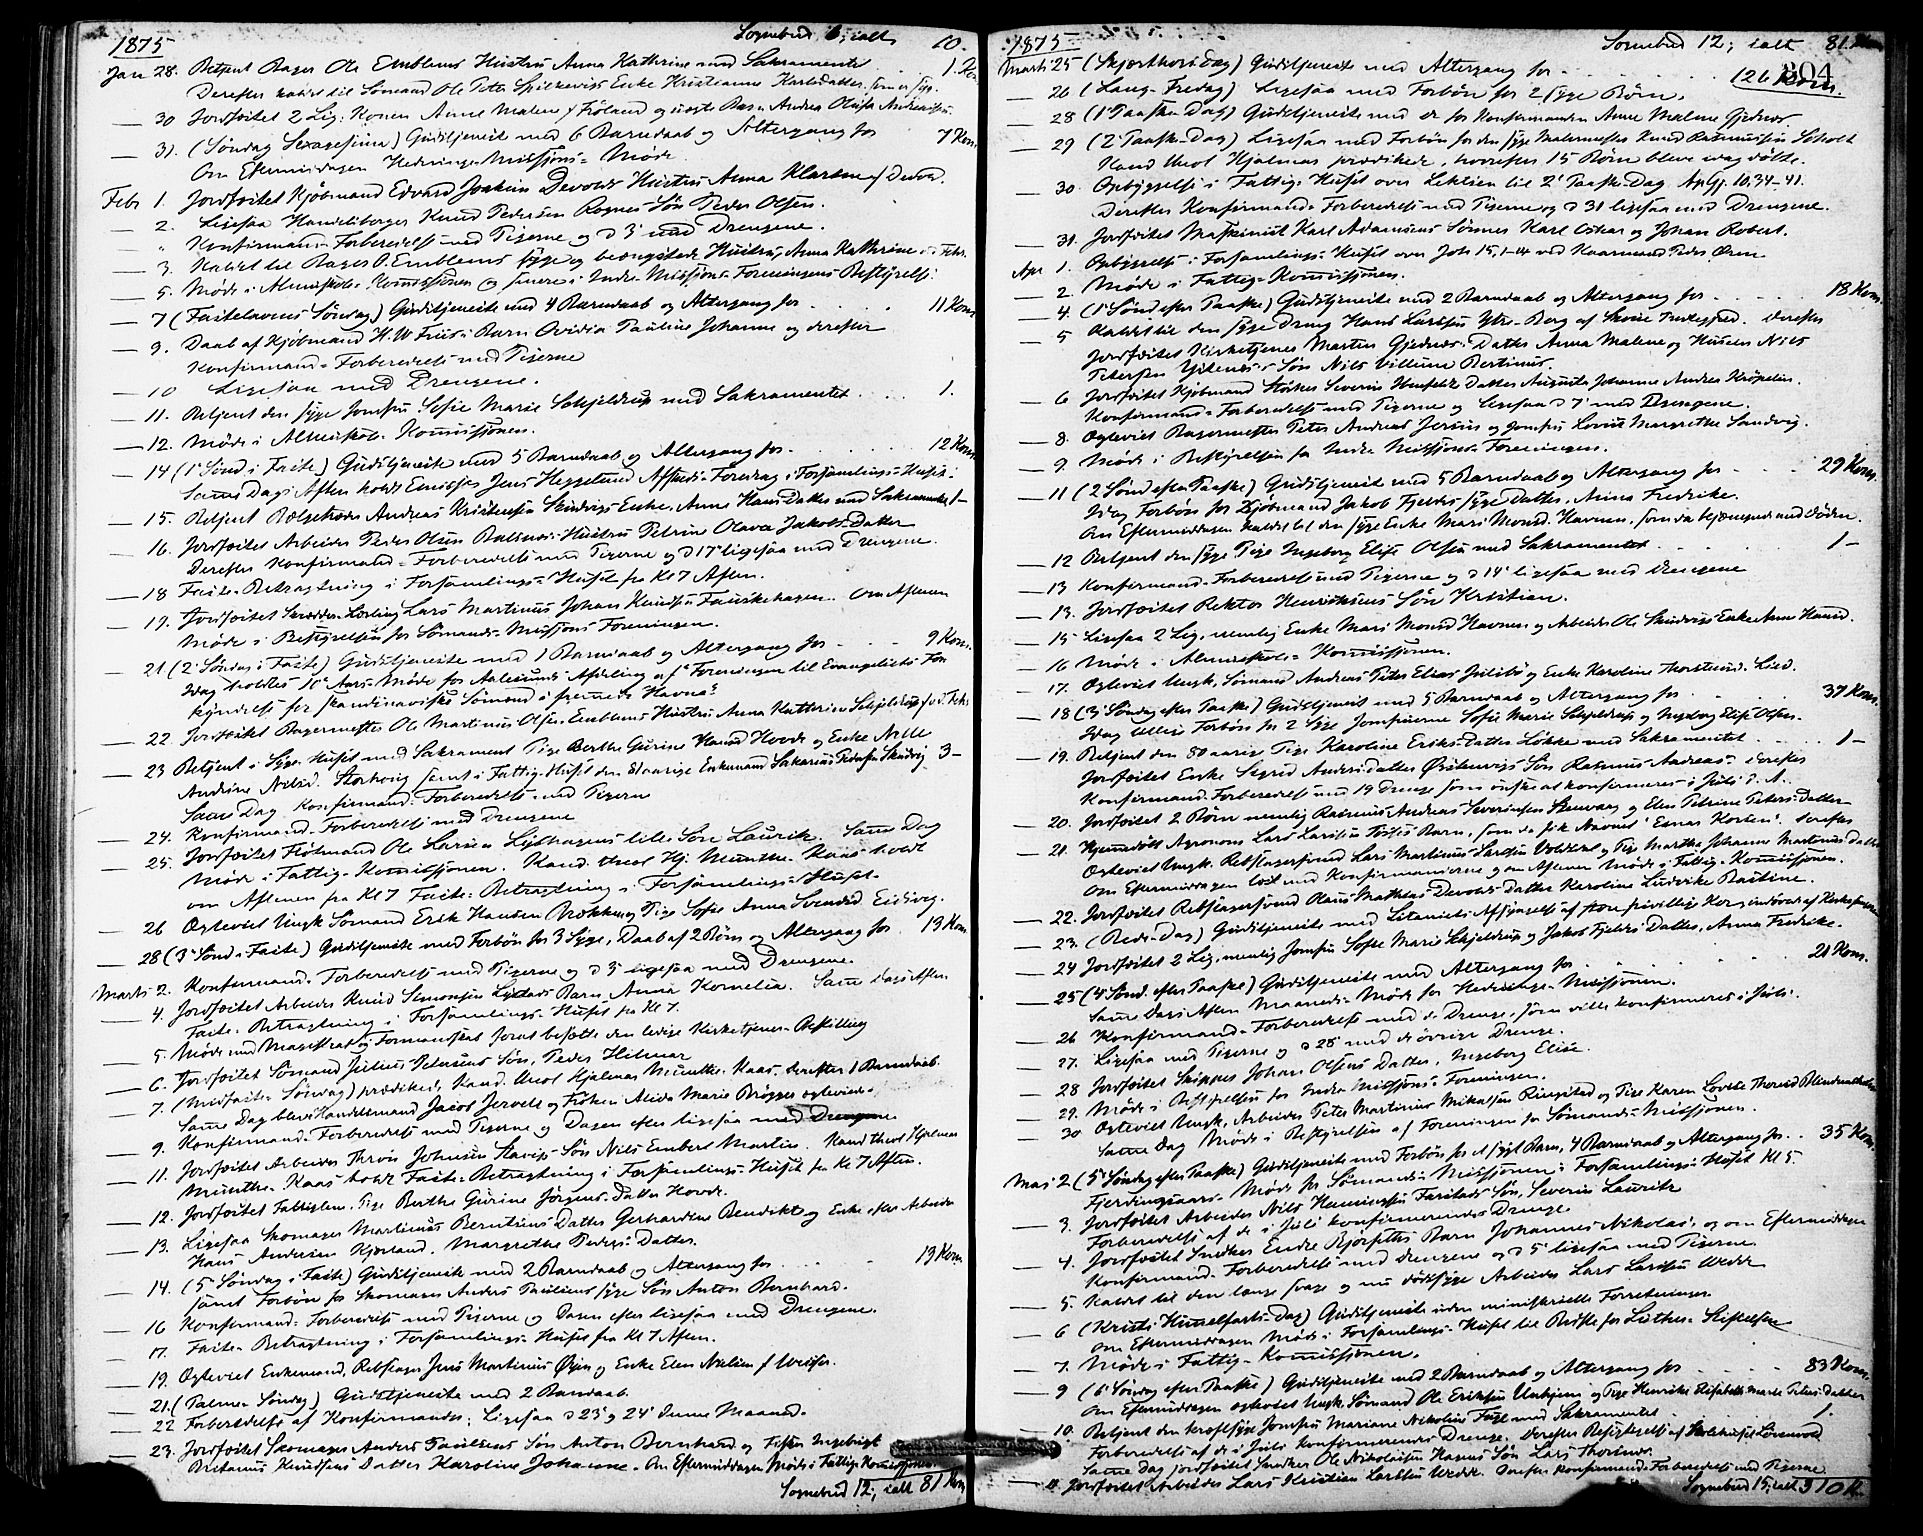 1875 Sognebud 6, ialt 10.
Jan 28. Betjent Bager Ole Emblems Hustru Anna Kathrine med Sakramente 1. Kom
Derefter kaldet til Sømand Ole Peter Enke Kristianne
30 Jordfæstet 2 Lig: Konen Anne Malene Frøland og Barn Andrea
31. (Søndag Sexagesima) Gudstjeneste med 6 Barnedaab og Altergang for 7 Kom
Om Eftermiddagen Hednings-Missjons-Møde.
Febr 1. Jordfæstet Kjøbmand Edvard Joakim Devolds Hustru Anna Klartine f Devold.
2. Ligesaa Handelsborger Knud Pedersen Rognes Søn Peder Olsen.
" Konfirmand-Forberedelse med Pigerne og D 3 med Drengene.
3. Kaldet til Bager O. Emblems syge og beængstede Hustru, Anna Kathrine
5. Møde i Almueskole-Komissjonen og senere i Indre Missjons-Foreningens Bestyrelse.
7 (Fastelavens Søndag) Gudstjeneste med 4 Barnedaab og Altergang for 11 Kom
9. Daab af Kjøbmand H. W Friis's Barn Ovidia Pauline Johanne og derefter
Konfirmand-Forberedelse med Pigerne
10 Ligesaa med Drengene.
11. Betjent den syge Jomfru Sofie Marie Schjeldrup med Sakramentet 1.
12. Møde i Almueskole-Komissjonen.
14 (1 Sønd i Faste) Gudstjeneste med 5 Barnedaab og Altergang for 12 Kom
Samme Dags Aften holdt Emissær Jens Heggelund Afskeds-Foredrag i Forsamlings-Huset.
15. Betjent Andreas Enke, Anne Hans Datter med Sakramentet 1-
16. Jordfæstet Arbeider Peder Olsen Hustru Petrine Olava Jakobs-Datter
Derefter Konfirmand-Forberedelse med Pigerne og D 17 ligesaa med Drengene.
18 Faste-Betragtning i Forsamlings-Huset fra Kl 7 Aften.
19. Jordfæstet Lars Martinus Johan Knudsen Fauskehagen. Om Aftenen
Møde i Bestyrelsen for Sømands-Missjons Foreningen.
21 (2 Søndag i Faste) Gudstjeneste med 1 Barnedaab og Altergang for 9 Kom.
Idag holdtes 10 Aars-Møde for Aalesunds Afdeling af "Foreningen til Evangeliets For-
kyndelse for skandinaviske Sømænd i fremmede Havne"
22. Jordfæstet Bagermester Ole Martinus Olsen Emblems Hustru Anna Kathrine Schjeldrup
23 Betjent i Syge-Huset med Sakrament Pige Berthe Gurine Hovde og Enke Nille
Andrine Nilsd. Storhoug samt i Fattig-Huset den Enkemand Sakarias Pedersen Skudvig 3-
Samme Dag Konfirmand-Forberedelse med Pigerne
24. Konfirmand-Forberedelse med Drengene
25. Jordfæstet Ole Larsen lille Søn Laurits. Samme Dag
Møde i Fattig-Komissjonen. Kand. theol Hj. Munthe-Kaas holdt
om Aftenen fra Kl 7 Faste-Betragtning i Forsamlings-Huset.
26 Ægteviet Ungk. Sømand Erik Hansen Brække og Pige Sofie Anna Svendsd
28 (3 Sønd i Faste) Gudstjeneste med Forbøn for 3 Syge, Daab af 2 Børn og Altergang for 19 Kom.
Marts 2. Konfirmand-Forberedelse med Pigerne og D 3 ligesaa med Drengene.
4. Jordfæstet Arbeider Knud Simonsen Barn Anna Kornelia. Samme Dags Aften
Faste-Betragtning i Forsamlings-Huset fra Kl 7.
5. Møde med Magistrat og Formandskab forat besætte den ledige Kirketjener-Bestilling
6. Jordfæstet Sømand Julius Petersens Søn, Peder Hilmar
7. (Midfaste-Søndag) prædikede Kand. theol Hjalmar Munthe-Kaas, derefter 1 Barnedaab
Samme Dag bleve Handelsmand Jacob Jervell og Frøken Alida Marie Brøgger ægteviede.
9. Konfirmand-Forberedelse med Pigerne og Dagen efter ligesaa med Drengene
11. Jordfæstet Arbeider Thron Johnsen Slavigs Søn Nils Embert Martin. Kand theol Hjalmar
Munthe-Kaas holdt Faste-Betragtning i Forsamlings-Huset fra Kl 7 Aften.
12. Jordfæstet Fattiglem, Pige Berthe Gurine Jørgens-Datter Hovde.
13. Ligesaa Skomager Martinus Berntsens Datter Gerhardine Benedikte og Enke efter Arbeider
Hans Andersen Hjorland. Margrethe Peders-Datter.
14. (5 Søndag i Faste) Gudstjeneste med 2 Barnedaab og Altergang for 19 Kom.
samt Forbøn for Skomager Anders Paulsens syge Søn Anton Bernhard.
16 Konfirmand-Forberedelse med Pigerne og Dagen efter ligesaa med Drengene.
17. Faste-Betragtning i Forsamlings-Huset fra Kl 7 Aften.
19. Ægteviet Enkemand, Rebslager Jens Martinus Øyen og Enke Elen Nielsen f
21. (Palme-Søndag) Gudstjeneste med 2 Barnedaab.
22 Forberedelse af Konfirmander; Ligesaa D 23 og 24 denne Maaned.
23. Jordfæstet Skomager Anders Paulsens Søn Anton Bernhard og Fisker Ingebrigt
Bertanus Knudsens Datter Karoline Johanne. Om Eftermiddagen Møde i Fattig-Komissjonen
Sognebud 12, ialt 81 Kom
1875 Sognebud 12, ialt 81 Kom
304
Marts 25 (Skjærthorsdag) Gudstjeneste med Altergang for 126 Kom.
26 (Lang-Fredag) Ligesaa med Forbøn for 2 syge Børn.
28 (1 Paaske Dag) Gudstjeneste med do for Konfirmanden Anne Malene Gjednes.
29 (2 Paaske-Dag) Ligesaa med Forbøn for den syge Malermester Knud Rasmussen Seholt
Kand theol Hjalmar prædikede, hvorefter 15 Børn bleve idag døbte.
30. Opbyggelse i Fattig-Huset over Lektien til 2 Paaske-Dag Ap Gj. 10,34-41.
Derefter Konfirmand-Forberedelse med Pigerne og D 31 ligesaa med Drengene.
31. Jordfæstet Maskinist Karl Adamsens Sønner Karl Oskar og Johan Robert.
Apr 1. Opbyggelse i Forsamlings-Huset over Joh 15,1-14 ved Kaarmand Peder Øren
2. Møde i Fattig-Komissjonen.
4. (1 Sønd efter Paaske) Gudstjeneste med 2 Barnedaab og Altergang for 18 Kom.
5 Kaldet til den syge Dreng Hans Larssen Ytre-Borg af Skoue Præstegjeld. Derefter
Jordfæstet Kirketjener Martin Gjednes's Datter Anna Malene og Husem Nils
Petersen Søn Nils Villum Bertinus.
6 Jordfæstet Kjøbmand Størker Severin Datter Augusta Johanne Andrea Krøpelin.
Konfirmand-Forberedelse med Pigerne og ligesaa D 7 med Drengene.
8. Ægteviet Bagermester Peter Andreas Jersin og Jomfru Lovise Margrethe Sandvig.
9 Møde i Bestyrelsen for Indre Missjons-Foreningen.
11 (2 Sønd efter Paaske) Gudstjeneste med 5 Barnedaab og Altergang for 29 Kom.
Idag Forbøn for Kjøbmand Jakob Fjelds syge Datter, Anna Fredrike.
Om Eftermiddagen kaldet til den syge Enke Mari Monsd. Havnen, som da kjæmpede med Døden.
12 Betjent den syge Pige Ingeborg Elise Olsen med Sakramentet 1-
13 Konfirmand-Forberedelse med Pigerne og D 14 ligesaa med Drengene
13. Jordfæstet Rektor Henriksens Søn Kristian.
15 Ligesaa 2 Lig, nemlig Enke Mari Monsd Havnen, og Arbeider Ole Skudvigs Enke Anne Hansd.
16 Møde i Almueskole-Komissjonen.
17. Ægteviet Ungk. Sømand Andreas Peter Elias Julibø og Enke Karoline Thorstensd. Lied.
18 (3 Søndag efter Paaske) Gudstjeneste med 5 Barnedaab og Altergang for 37 Kom.
Idag tillige Forbøn for 2 syge Jomfruerne Sofie Marie Schjeldrup og Ingeborg Elise Olsen.
19. Betjent den 80 aarige Pige Karoline Eriks-Datter Løkke med Sakramentet 1-
Jordfæstet Enke Sigrid Anders-Datter Østervigs Søn Rasmus Andreas. Derefter
Konfirmand-Forberedelse med 19 Drenge som ønske at konfirmeres i Juli d. A.
20. Jordfæstet 2 Børn nemlig Rasmus Andreas Severinsen Stenvaag og Elen Petrine Peters-Datter
21. Hjemmedøbt Agronom Lars Larssen Barn, som da fik Navnet "Einar Korten". Derefter
Ægteviet Ungk. Rebslagersvend Lars Martinus Larssen Voldsdal og Pige Marthe Johanne Martinus-Datter
Om Eftermiddagen læst med Konfirmanderne og om Aftenen Møde i Fattig-Komissjonen.
22. Jordfæstet Rebslagersvend Claus Mathias Devolds Datter Karoline Ludvike Bastine.
23. (Bede-Dag) Gudstjeneste med Litaniets Afsyngelse af
24 Jordfæstet 2 Lig, nemlig Jomfru Sofie Marie Schjeldrup og Jakob Fjelds Datter, Anna Fredrike.
25 (4 Sønd. efter Paaske) Gudstjeneste med Altergang for 21 Kom.
Samme Dags Aften Maaneds-Møde for Hednings-Missjonen.
26 Konfirmand-Forberedelse med de Drenge, som ville konfirmeres i Juli.
27. Ligesaa med Pigerne og D 28 med de øvrige Drenge.
28 Jordfæstet Skipper Johan Olsens Datter, Ingeborg Elise.
29. Møde i Bestyrelsen for Indre Missjons-Foreningen.
30 Ægteviet Ungk, Arbeider Peter Martinus Mikalsen Ringstad og Pige Karen Lovise Thoresd
Samme Dag Møde i Bestyrelsen af Foreningen for Sømands-Missjonen.
Mai 2 (5 Søndag efter Paaske) Gudstjeneste med Forbøn for et sygt Barn, 4 Barnedaab og Altergang for 35 Kom.
Fjerdingaars-Møde for Sømands-Missjonen i Forsamlings-Huset Kl 5.
3. Jordfæstet Arbeider Nils Henningsen Farstads Søn, Severin Lauritz
Forberedelse af de i Juli konfirmerendes Drenge
4. Jordfæstet Snedker Endre Bjørsetts Barn Johannes Nikolai, og om Eftermiddagen
Konfirmand-Forberedelse med Drengene og D 5 ligesaa med Pigerne.
5. Kaldet til den længe svage og nu dødssyge Arbeider Lars Larssen Wedde
6 (Kristi Himmelfarts-Dag) Gudstjeneste uden ministerielle Forretninger
Om Eftermiddagen Møde i Forsamlings-Huset til Bedste for Luther-Stiftelsen
7. Møde i Fattig-Komissjonen.
9 (6 Søndag efter Paaske) Gudstjeneste med 2 Barnedaab og Altergang for 83 Kom.
Om Eftermiddagen ægteviet Ungk. Sømand Ole Eriksen Unhjem og Pige Henrikke Elisabeth Marie Peters-Datter
10. Betjent den kræftsyge Jomfru Mariane Nikoline Fast med Sakramentet 1.
Forberedelse af de i Juli konfirmerendes Drenge. Derefter Besigtigelse af
Samme Dag jordfæstet Snedker Ole Nikolaisen Søn Lars Thorstens.
11 Jordfæstet Arbeider Lars Kristian Larssen Wedde. Derefter Konfirmand-Forberedelse med Pigerne
Sognebud 15, ialt 310 K.